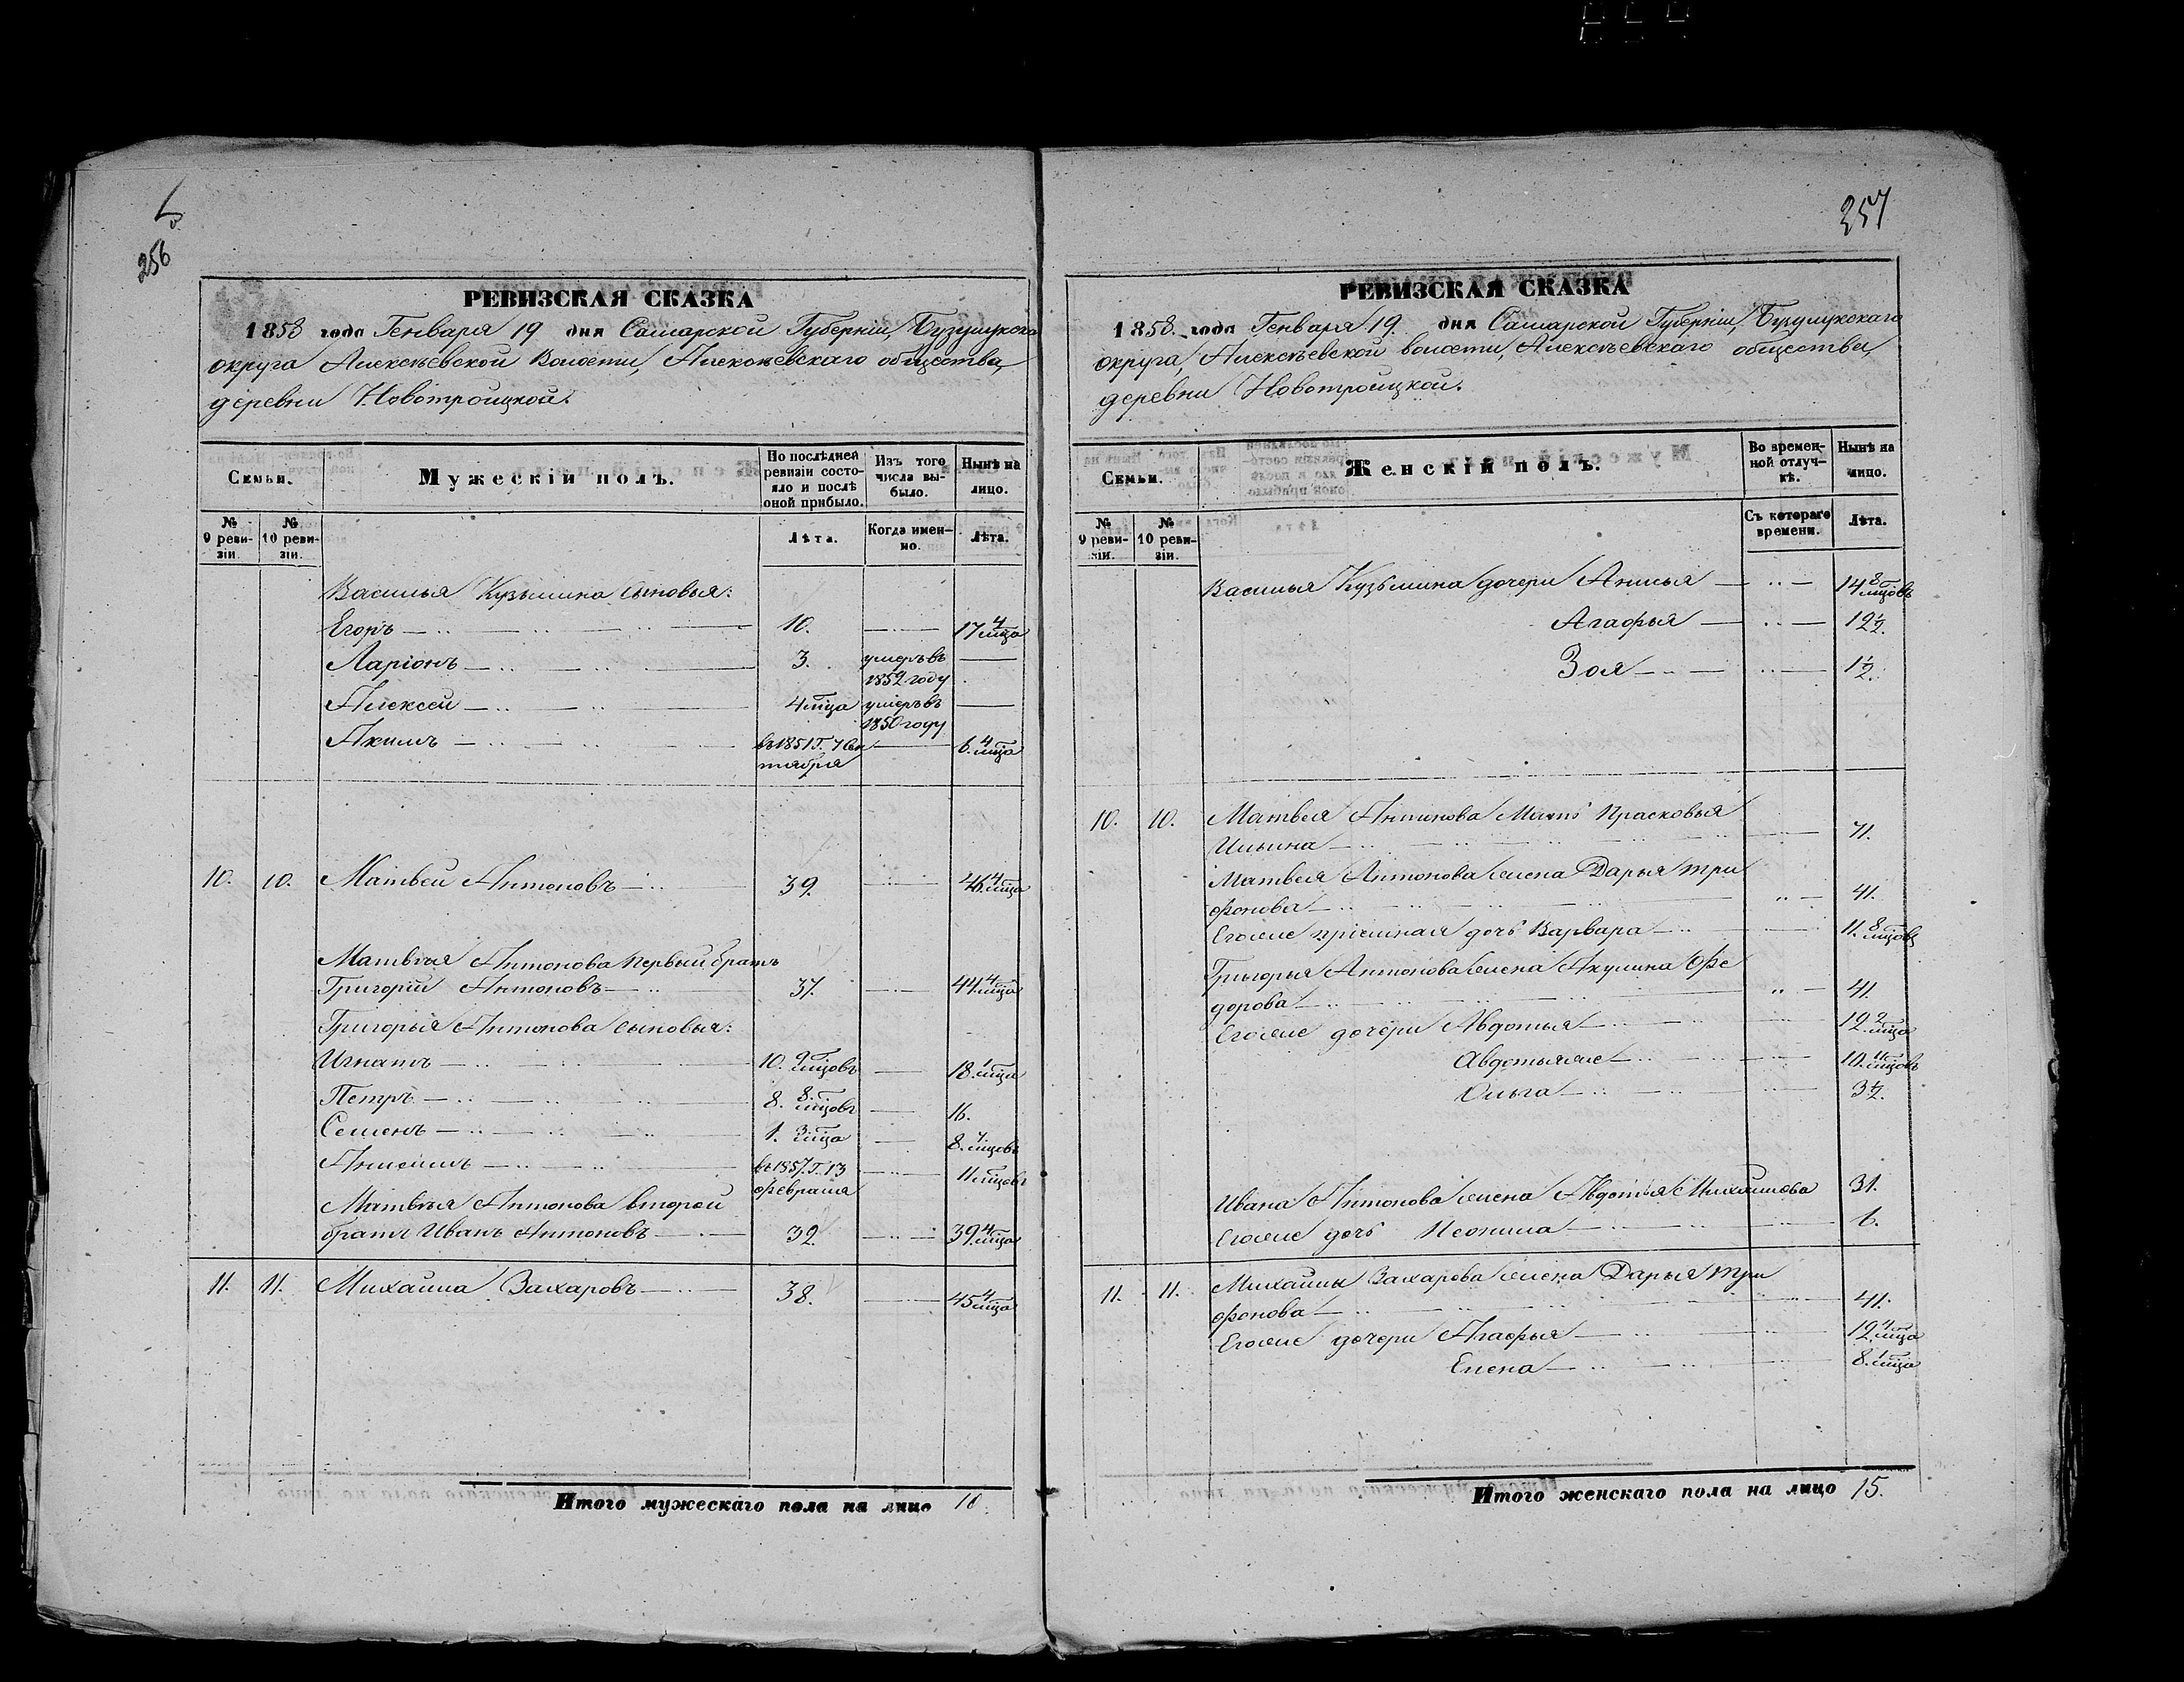 256
РЕВИЗСКАЯ СКАЗКА
1858 года Генваря 19 дня Самарской Губерніи, Бузулукскаго
округа Алексѣевской Волости, Алексѣевскаго общества,
деревни Новотроицкой.
Семьи. Мужескій полъ. По послѣдней ревизіи состояло и послѣ оной прибыло. Изъ того числа выбыло. Нынѣ на лицо.
№ 9 ревизіи. № 10 ревизіи. Лѣта. Когда именно. Лѣта.
Василья Кузьмина сыновья:
Егоръ 10. 17 4 мца
Ларіонъ 3. умеръ въ 1852 году
Алексей 4 мца умеръ въ 1850 году
Акимъ въ 1851 г. 7 Сентября 6. 4 мца
10. 10. Матвей Антоновъ 39. 46. 4 мца
Матвѣя Антонова первый братъ
Григорій Антоновъ 37. 44. 4 мца
Григорья Антонова сыновья:
Игнатъ 10. 9 мцовъ 18. 1 мца
Петръ 8. 8 мцовъ 16.
Семенъ 1. 3 мца 8. 7 мцовъ
Анисимъ въ 1857. г. 13 февраля 11 мцовъ
Матвѣя Антонова второй
братъ Иванъ Антоновъ 32. 39. 4 мца
11. 11. Михайла Захаровъ 38. 45 4 мца
Итого мужескаго пола на лицо 10.
257
РЕВИЗСКАЯ СКАЗКА
1858. года Генваря 19. дня Самарской Губерніи, Бузулукскаго
округа, Алексѣевской волости, Алексѣевскаго общества,
деревни Новотроицкой.
Семьи. Женскій полъ. Во временной отлучкѣ. Нынѣ на лицо.
№ 9 ревизіи. № 10 ревизіи. Съ котораго времени. Лѣта.
Василья Кузьмина дочери Анисья 14 8 мцовъ
Агафья 12 1/2.
Зоя 1 1/2.
10. 10. Матвея Антонова Мать Прасковья
Ильина 71.
Матвея Антонова жена Дарья Три
фонова 41.
Егоже пріемная дочь Варвара 11. 8 мцовъ
Григорья Антонова жена Акулина Фе
дорова 41.
Егоже дочери Авдотья 19. 2 мца
Авдотьяже 10. 11 мцовъ
Ольга 3 1/2.
Ивана Антонова жена Авдотья Михайлова 31.
Егоже дочь Неонила 6.
11. 11. Михайлы Захарова жена Дарья Три
фонова 41.
Егоже дочери Агафья 12. 4 мца
Елена 8. 1 мца
Итого женскаго пола на лицо 15.